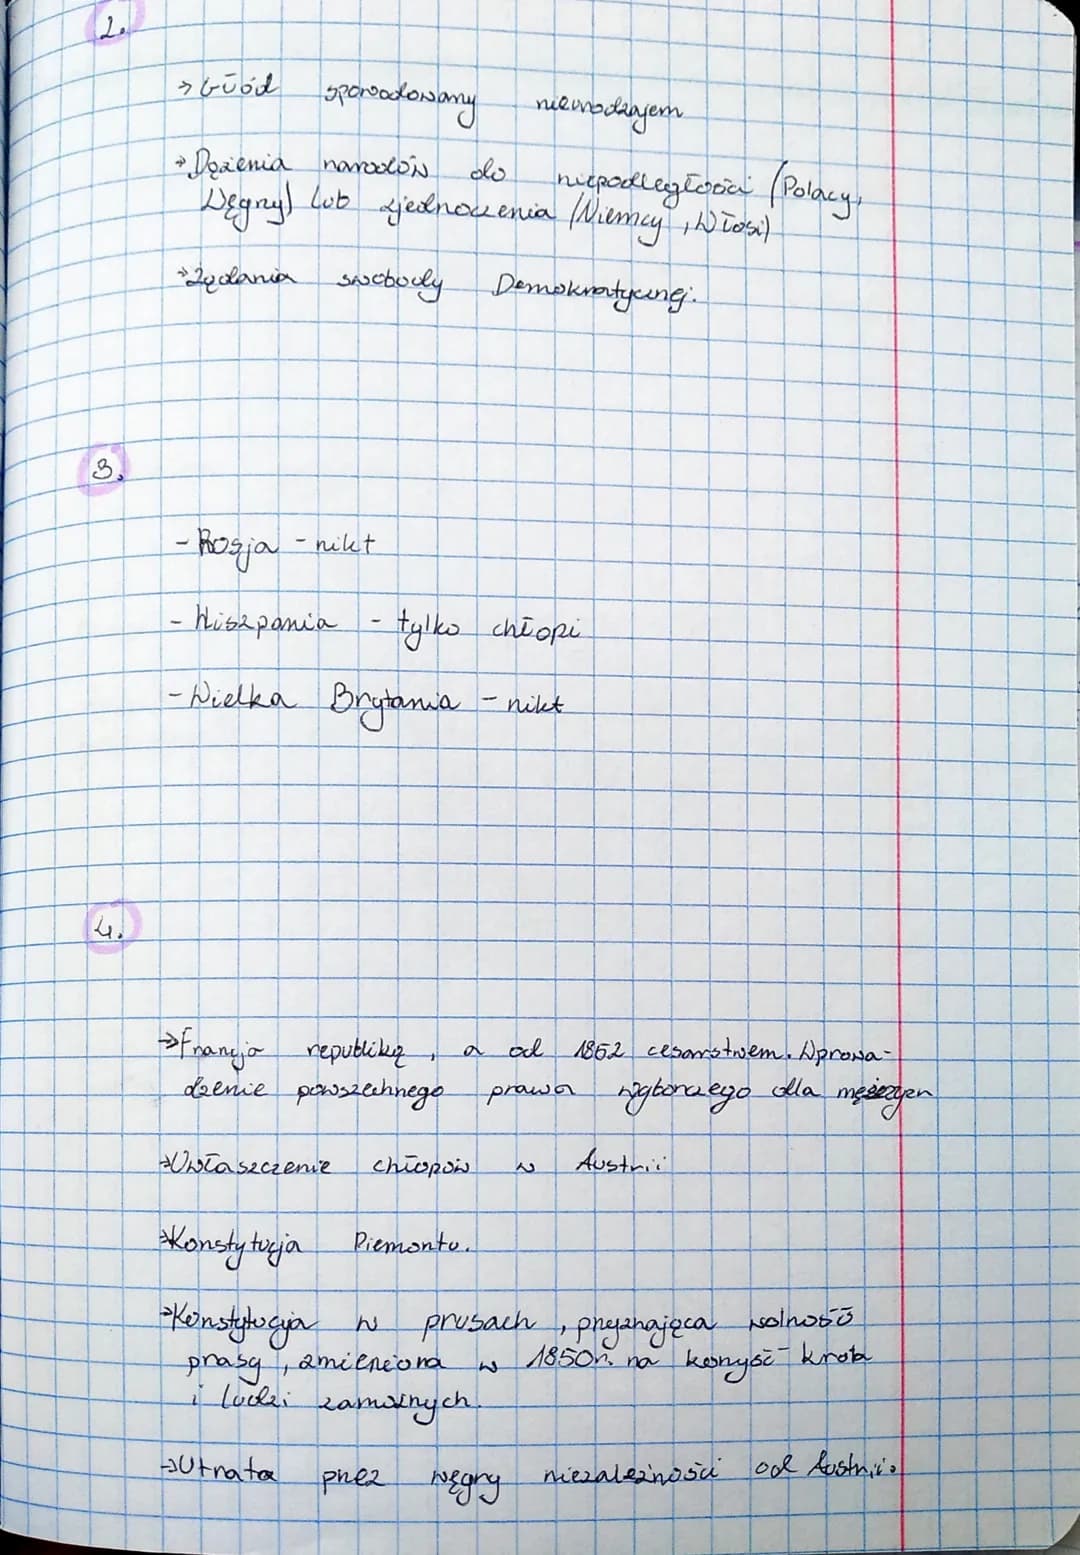 2.
→ Głód spowodowany nieurodzajem
→ Dążenia narodów do niepodległości (Polacy,
Węgry) lub zjednoczenia (Niemcy, Włosi)
→ Żądania swobody Demokratycznej.
3.
- Rosja - nikt
- Hiszpania - tylko chłopi
- Wielka Brytania - nikt
4.
→ Francja republiką, a od 1852 cesarstwem. Wprowa-
dzenie powszechnego prawa wyborczego dla mężczyzn
→ Uwłaszczenie chłopów w Austrii
→ Konstytucja Piemontu.
→ Konstytucja w prusach, przyznająca wolność
prasy, zmieniona w 1850r. na korzyść króla
i ludzi zamożnych.
→ Utrata przez węgry niezależności od Austrii.